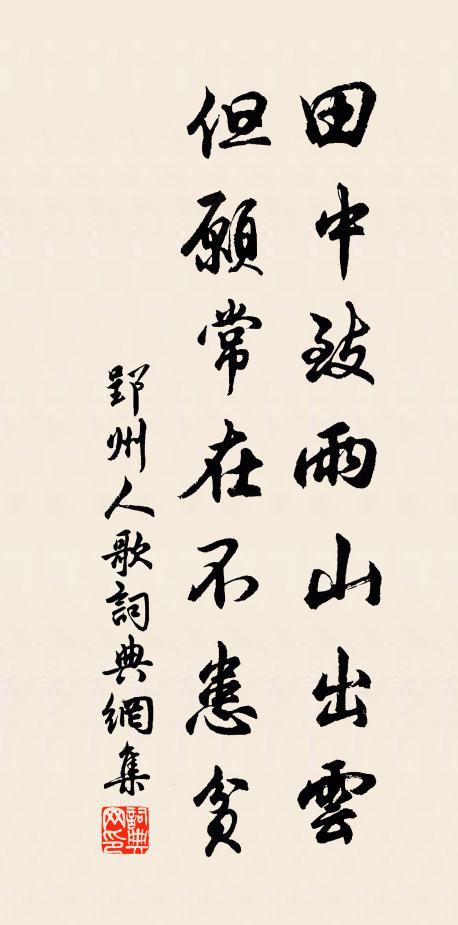 田中致雨山出雲
但願常在不患貧
郢州人歌詞典網集
詞典網印